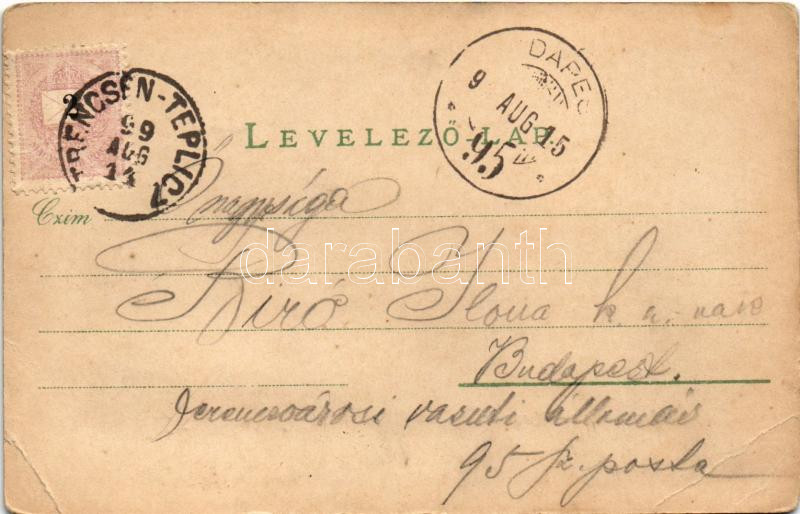 2
TRENCSÉN-TEPLICZ
99
AUG
14
DAPES
9 AUG 15
95
LEVELEZŐ-LAP
Czim
Őnagysága
Biró Ilona k. a.-nak
Budapest.
ferenczvárosi vasuti állomás
95 sz. posta
darabanth